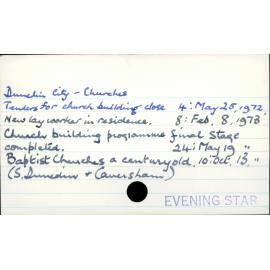 Dunedin City - Churches
Tenders for church building close 4: May 25, 1972
New lay worker in residence. 8: Feb. 8, 1973
Church building programme final stage
completed. 24: May 19 "
Baptist Churches a century old. 10: Oct. 13, "
(S. Dunedin & Caversham)
EVENING STAR